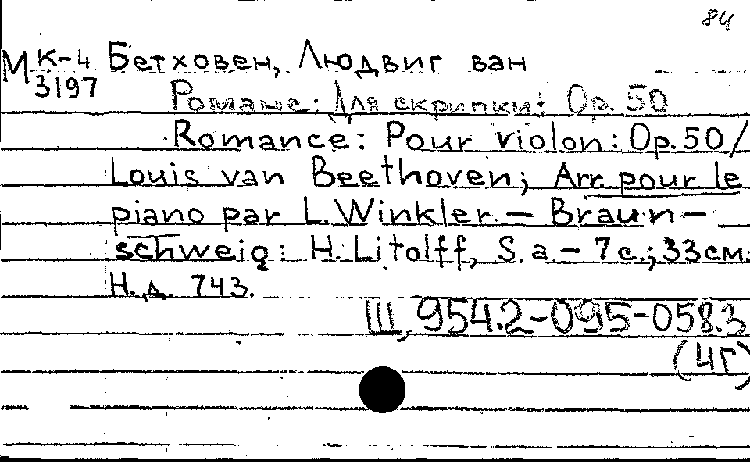 84
М К-4 Бетховен, Людвиг ван
3197
Романс: Для скрипки: Op. 50
Romance: Pour violon: Op. 50/
Louis van Beethoven; Arr. pour le
piano par L. Winkler. — Braun-
schweig: H. Litolff, S. a. — 7 с.; 33 см.
Н. д. 743.
III, 954.2-095-058.3
(4Г)